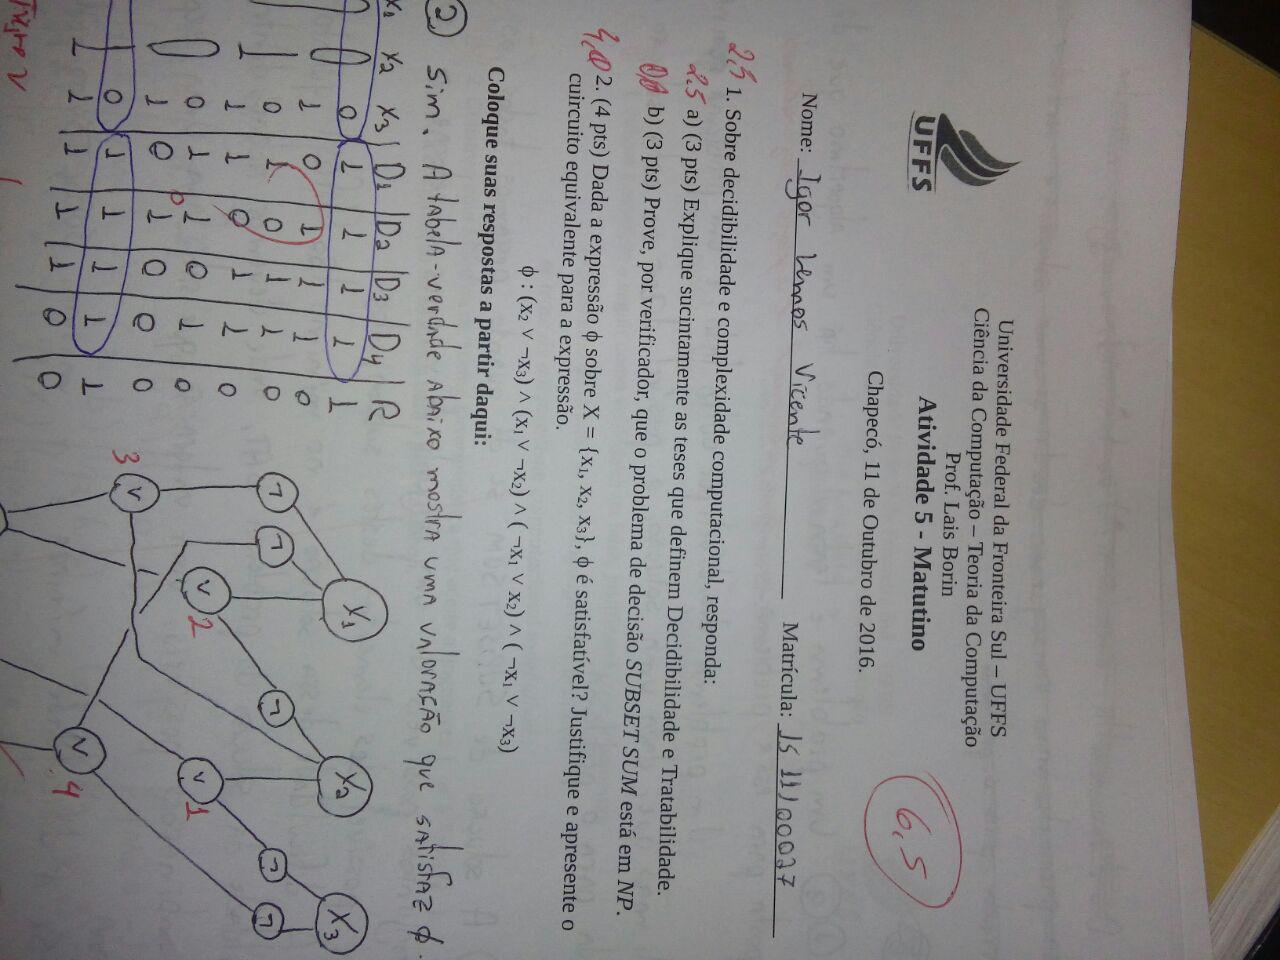 Universidade Federal da Fronteira Sul – UFFS
Ciência da Computação – Teoria da Computação
Prof. Lais Borin
UFFS
Atividade 5 - Matutino
6,5
Chapecó, 11 de Outubro de 2016.
Nome: Igor Lemos Vicente Matrícula: 1511100027
2,5 1. Sobre decidibilidade e complexidade computacional, responda:
2.5 a) (3 pts) Explique sucintamente as teses que definem Decidibilidade e Tratabilidade.
0,0 b) (3 pts) Prove, por verificador, que o problema de decisão SUBSET SUM está em NP.
4,0 2. (4 pts) Dada a expressão ϕ sobre X = {x₁, x₂, x₃}, ϕ é satisfatível? Justifique e apresente o
cuircuito equivalente para a expressão.
ϕ : (x₂ ∨ ¬x₃) ∧ (x₁ ∨ ¬x₂) ∧ ( ¬x₁ ∨ x₂) ∧ ( ¬x₁ ∨ ¬x₃)
Coloque suas respostas a partir daqui:
2 Sim. A tabela-verdade abaixo mostra uma valoração que satisfaz ϕ.
X₁ X₂ X₃ D₁ D₂ D₃ D₄ R
0 0 0 1 1 1 1 1
1 0 1 1 1 0
0 1 0 1 1 0
1 1 0 1 1 0
0 1 1 0 1 0
1 0 1 0 0 0
0 1 1 1 1 1
1 1 1 1 0 0
X₁ X₂ X₃
¬ ¬ ¬ ¬ ¬
∨ 2 ∨ 1
3 ∨
∨ 4